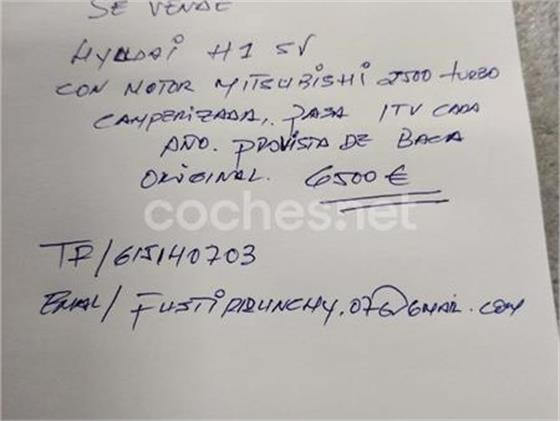 SE VENDE
HYUDAI H1 SV
CON MOTOR MITSUBISHI 2500 turbo
CAMPERIZADA, PASA ITV CADA
AÑO. PROVISTA DE BACA
ORIGINAL. 6500 €
coches.net
TF/615140703
EMAL/ 07@GMAIL.COM